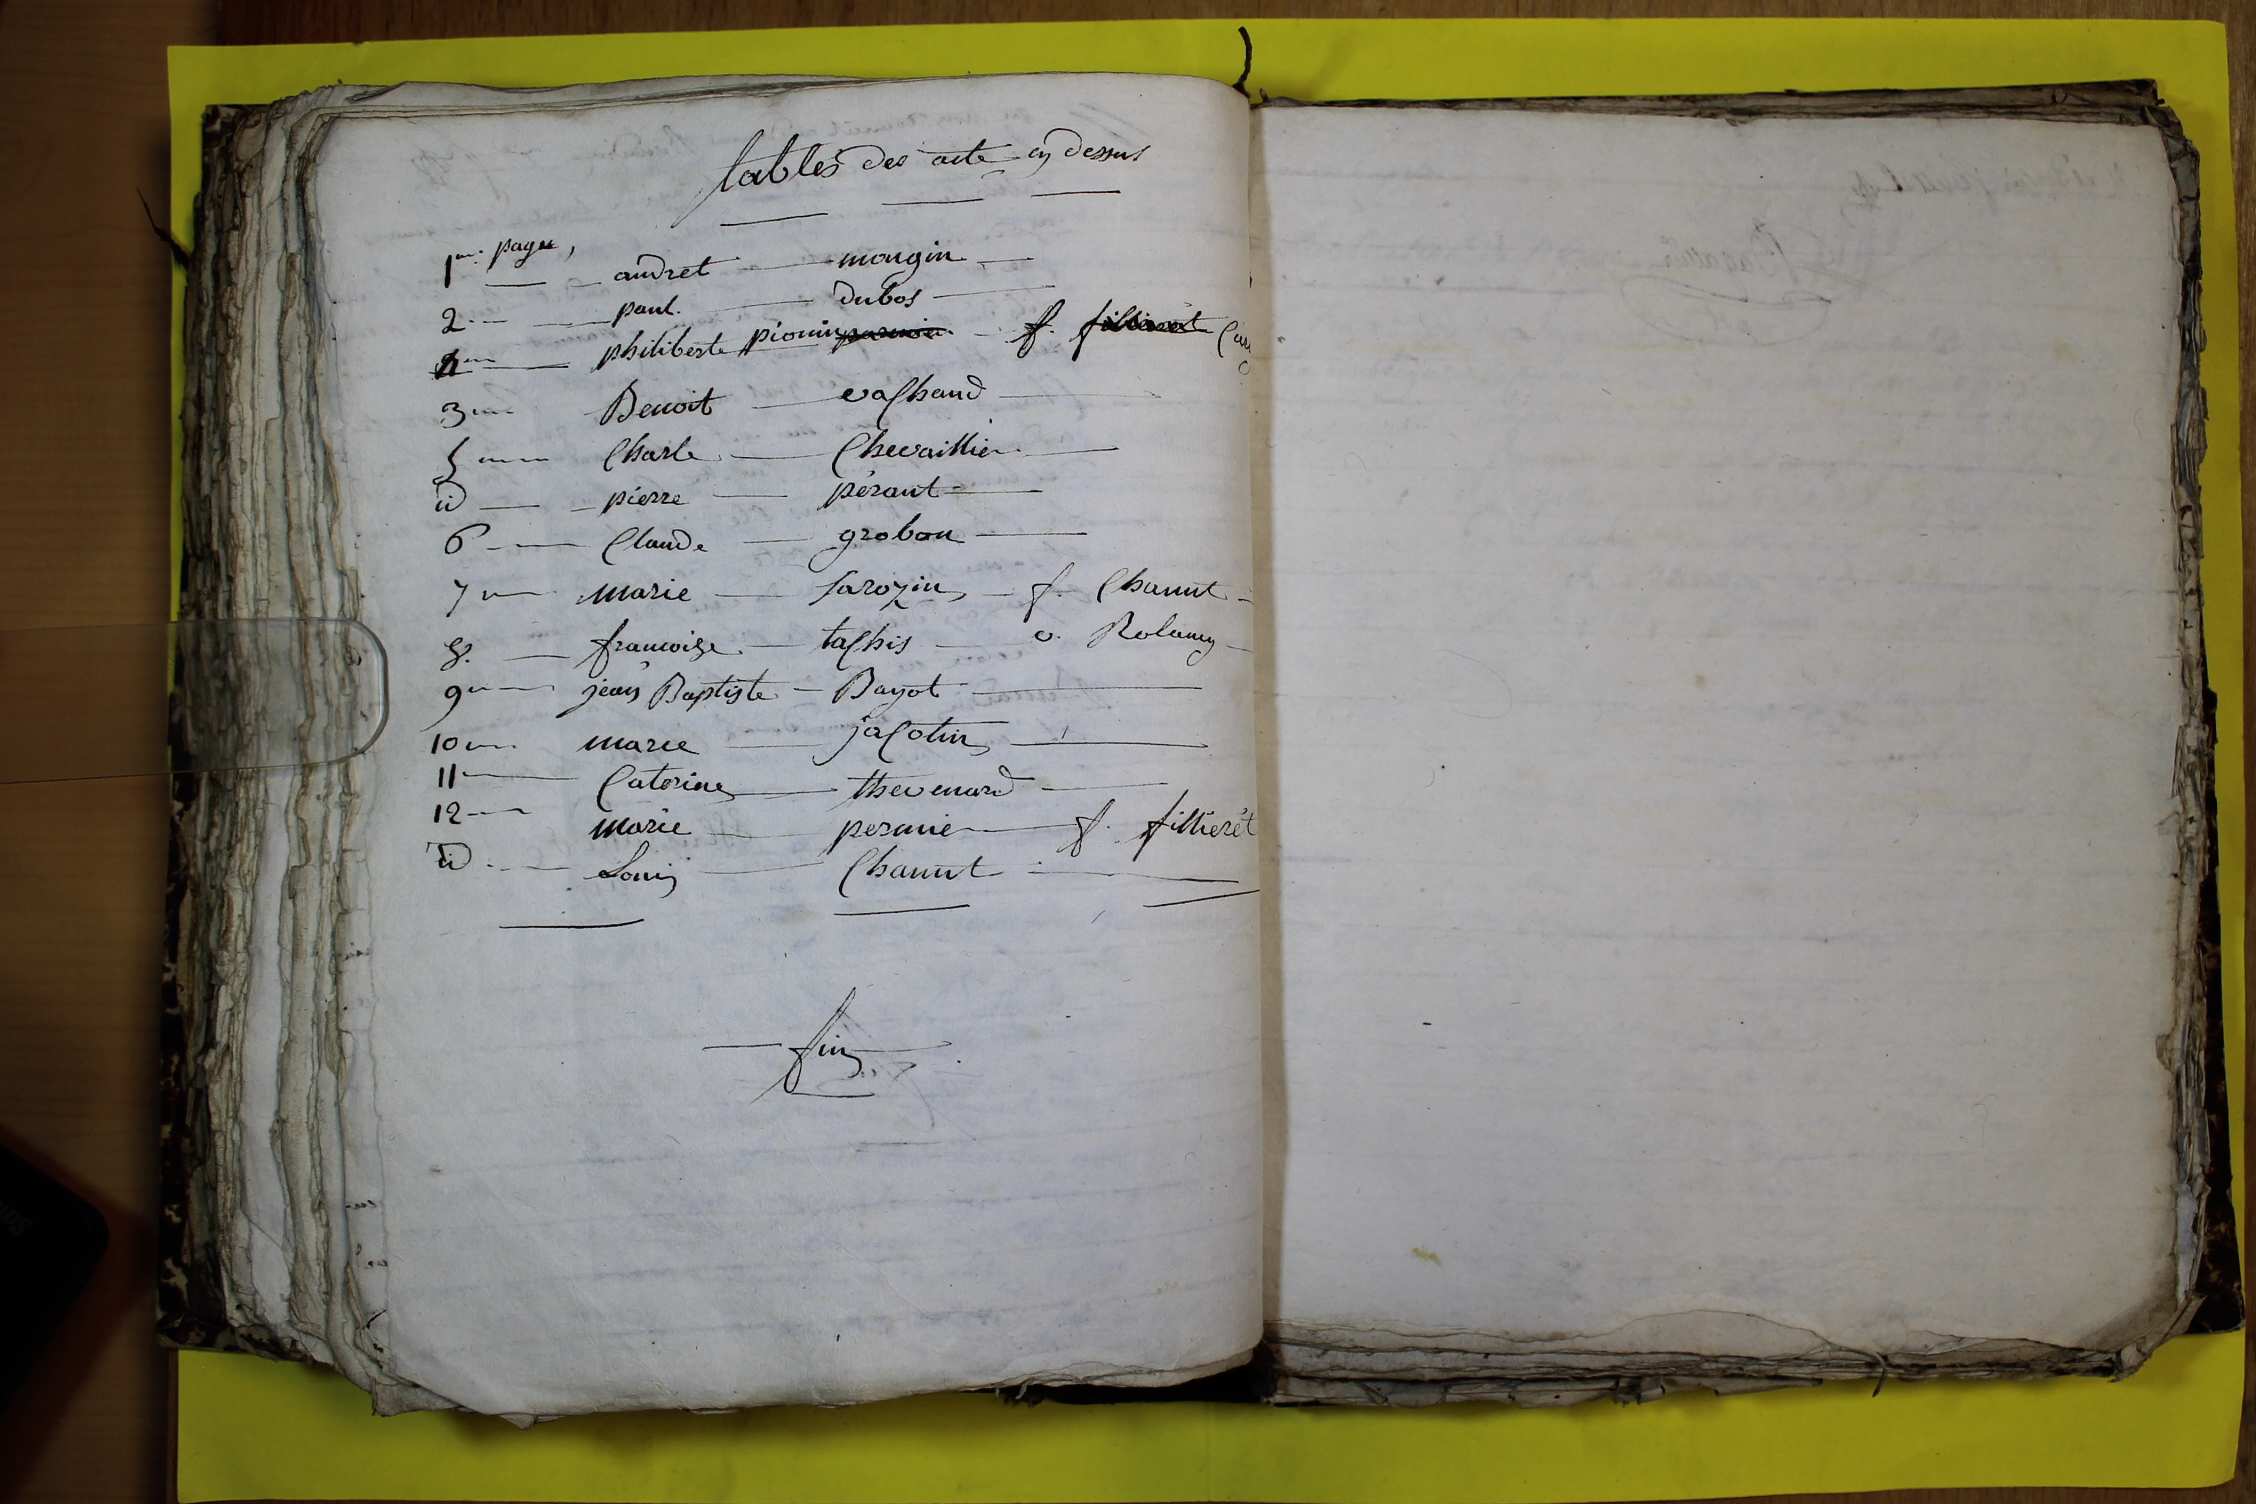 tables des acte cy dessus
1re page, andret mougin
2 paul dubos
4 philiberte piouin f.
3 Benoit vaChand
5 Charle Chevaillier
id pierre pérant
6 Claude grobon
7 marie Sarozin f. Chanut
8. francoise taChis v. Rolamy
9 jean Baptiste Bayot
10 marie jaCotin
11 Caterine thevenard
12 marie permie f. fillierét
id Louis Chanut
fin